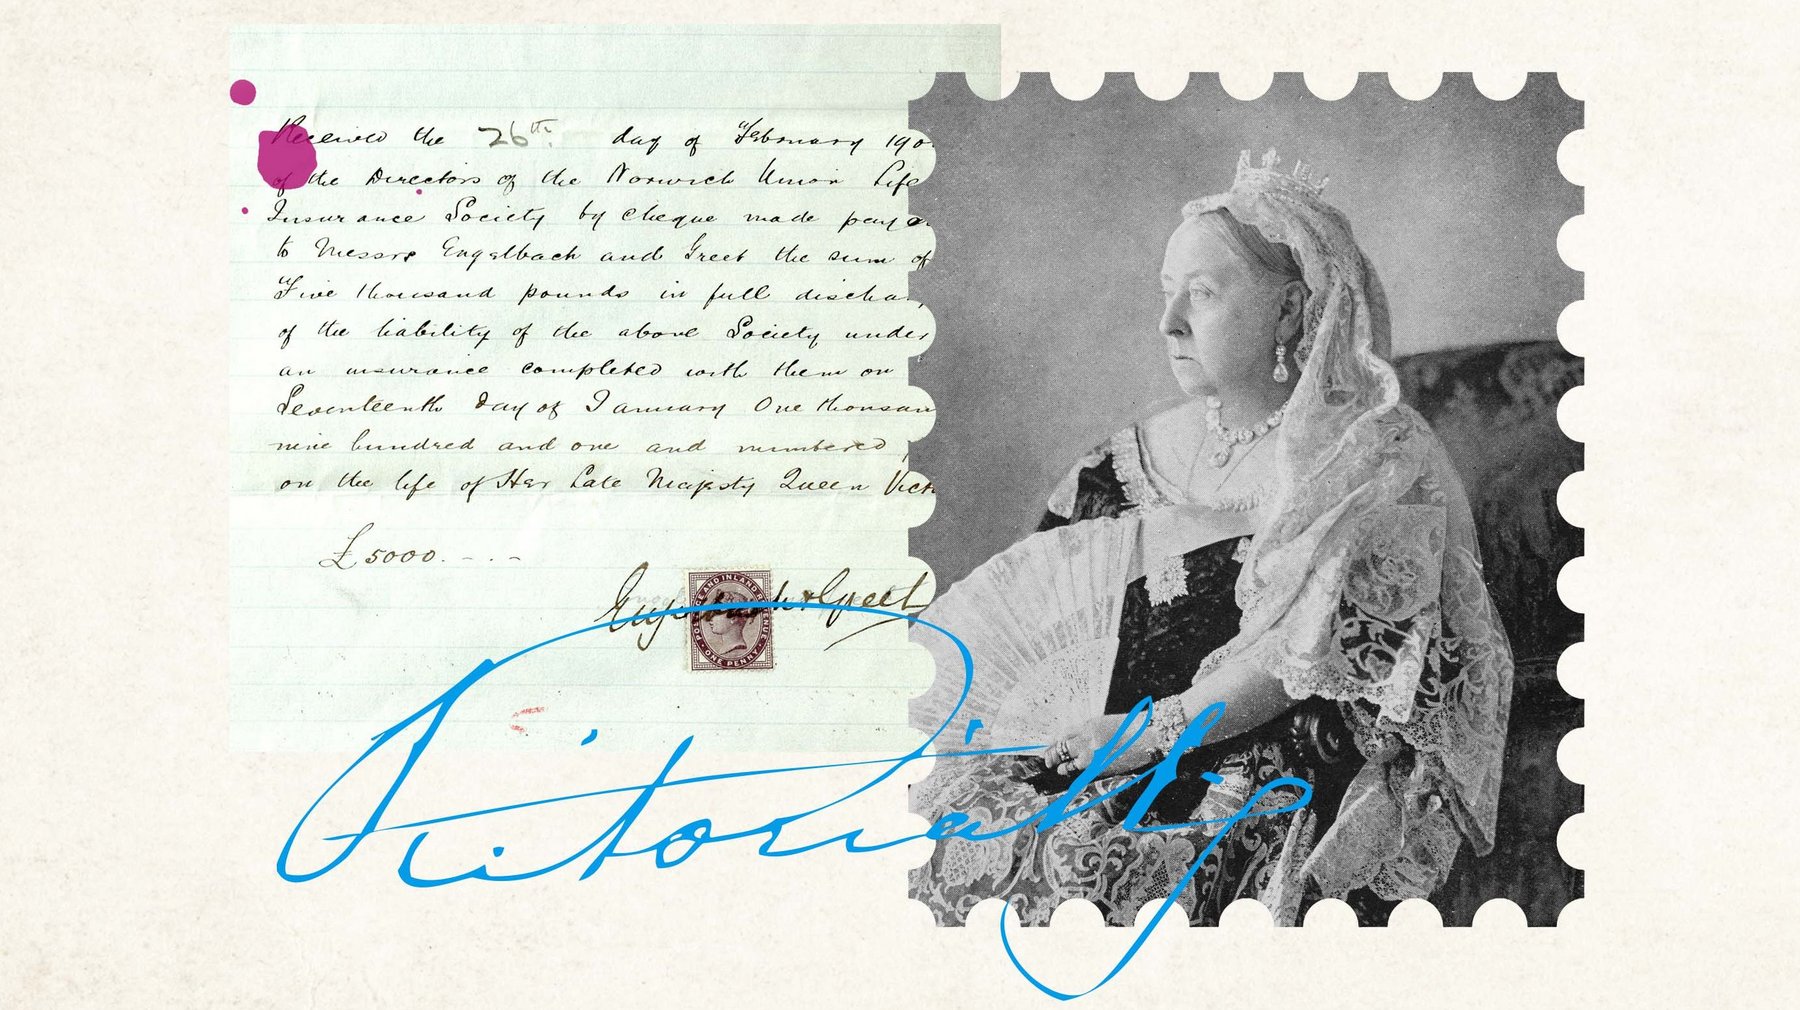 Received the 26th. day of February 190
of the Directors of the Norwich Union Life
Insurance Society by cheque made paya
to Messrs Engelbach and Greet the sum of
Five thousand pounds in full dischar
of the liability of the above Society under
an insurance completed with them on
Seventeenth Day of January One thousan
nine hundred and one and numbered
on the life of Her Late Majesty Queen Vict
£5000.---
POSTAGE AND INLAND REVENUE
ONE PENNY